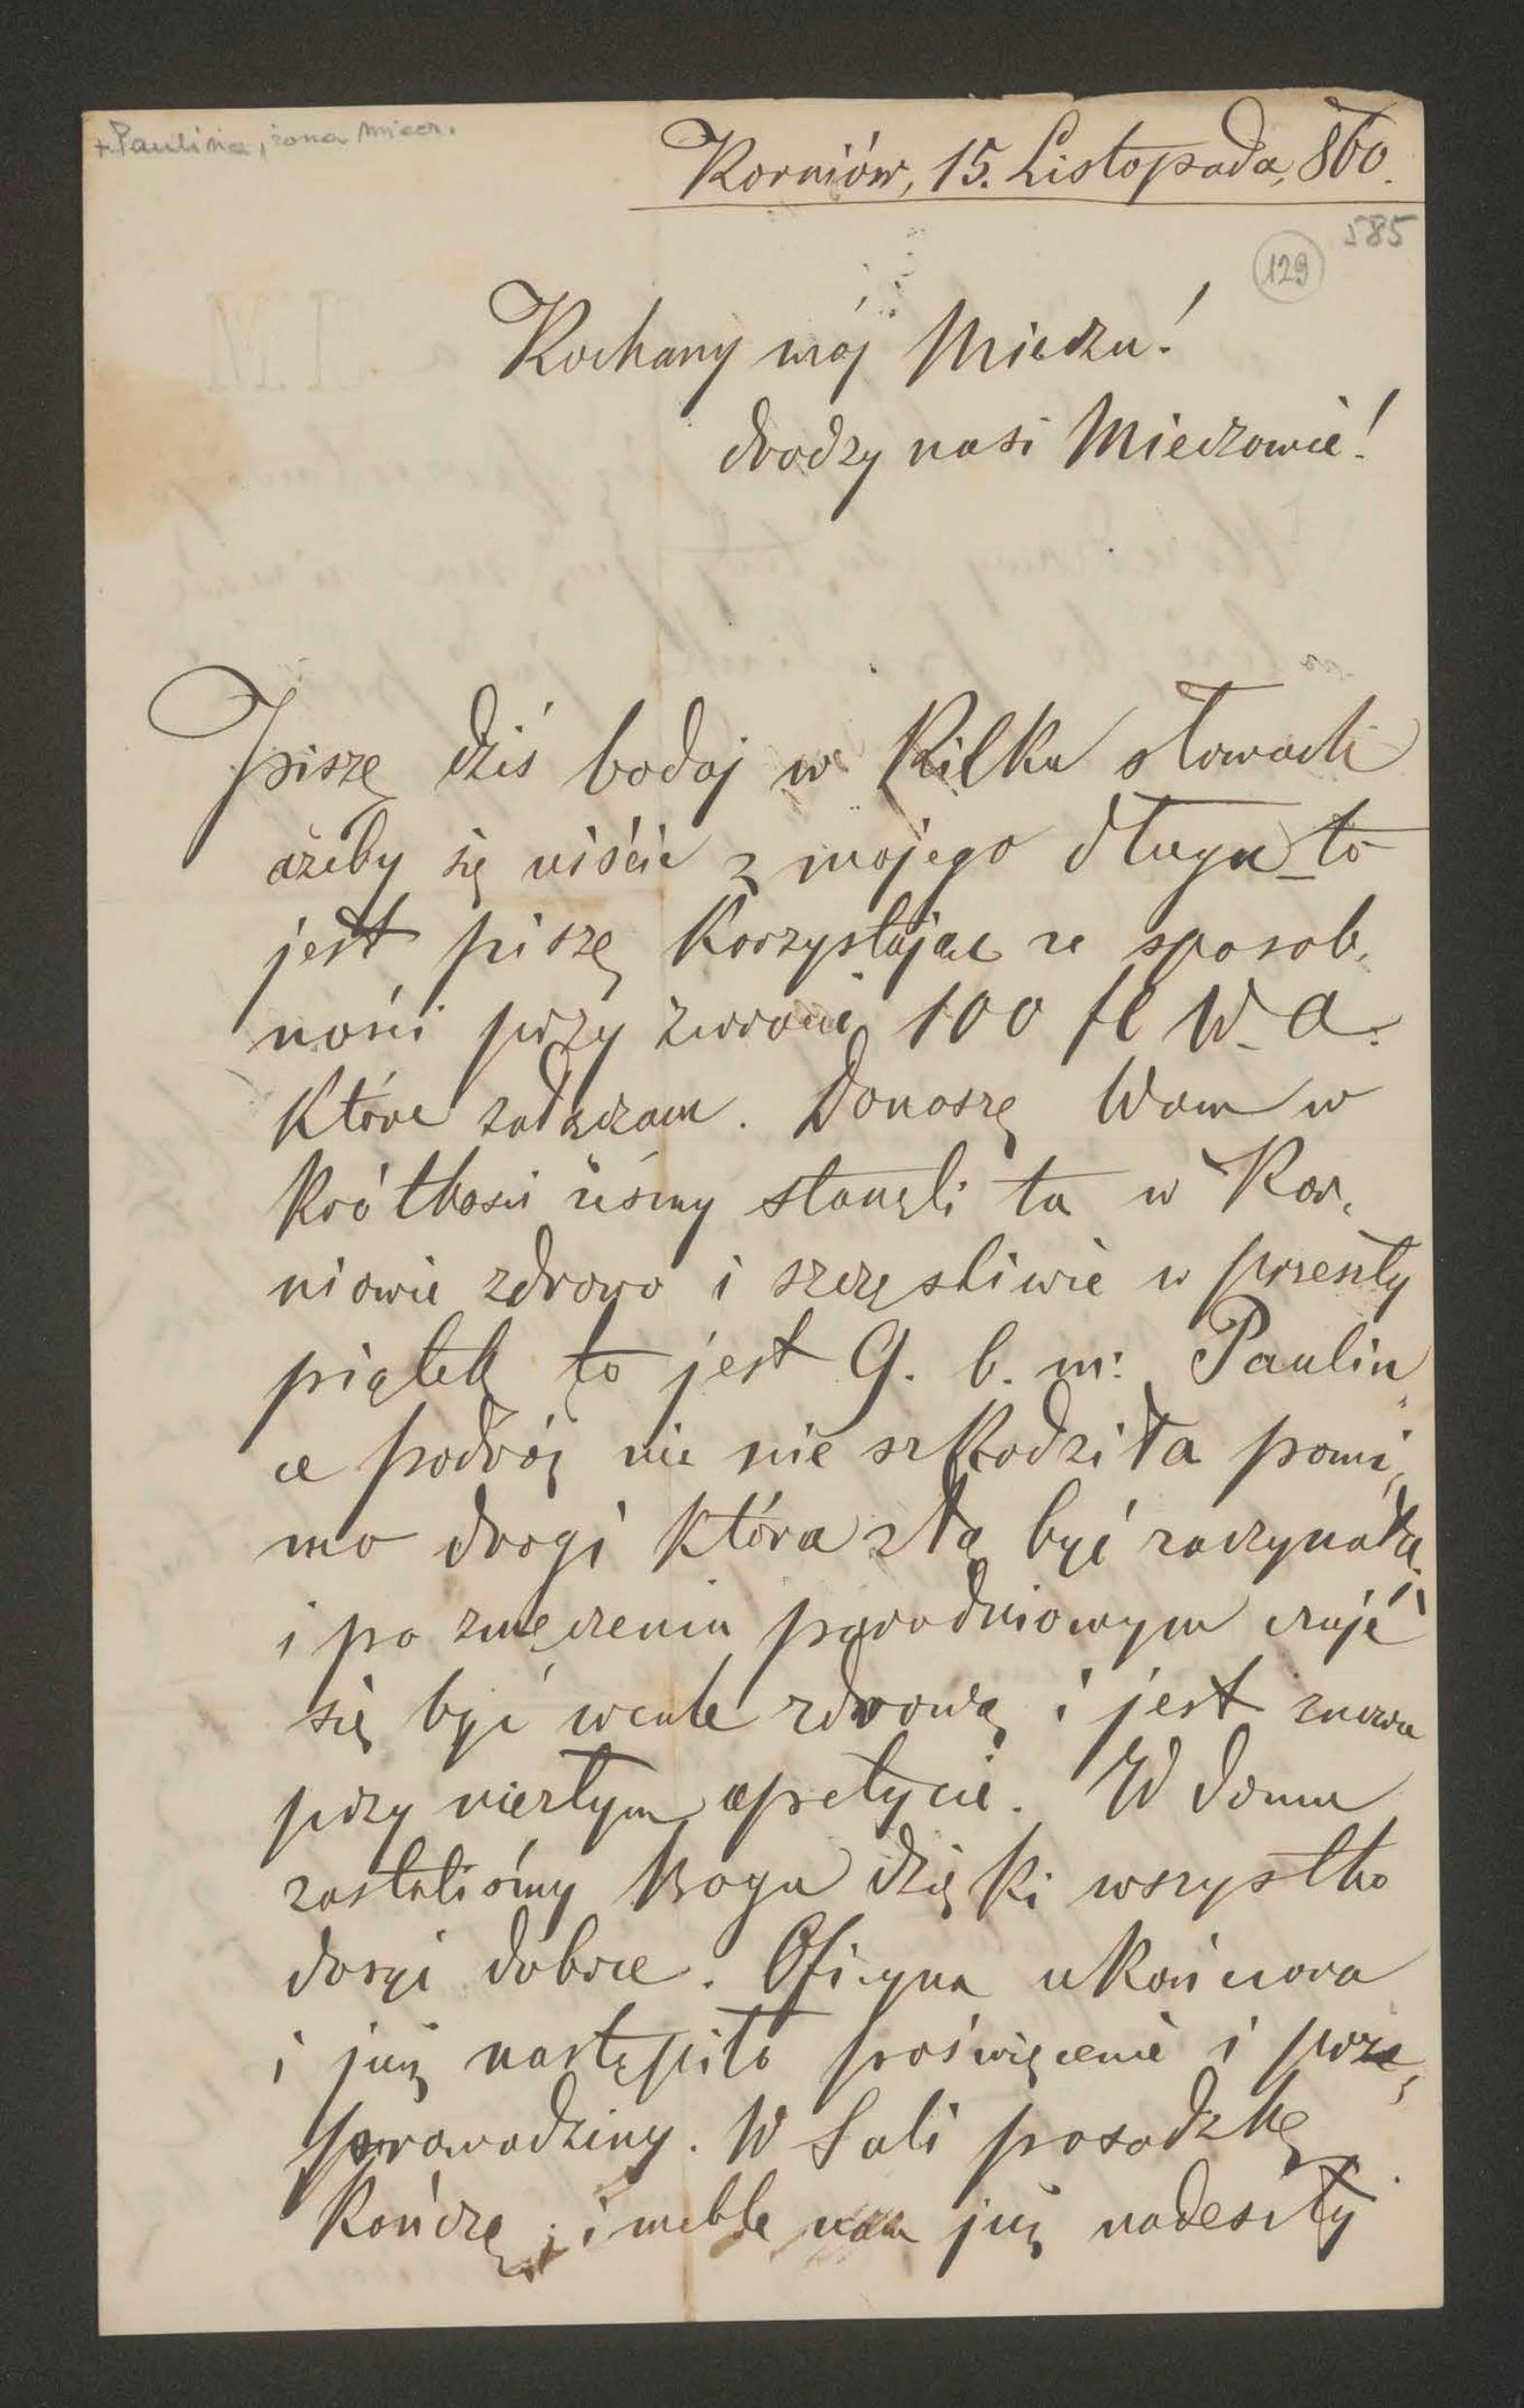 + Paulina, żona Miecz.
Korniów, 15. Listopada, 860.
585
129
Kochany mój Mieczu!
drodzy nasi Mieczowie!
Piszę dziś bodaj w kilku słowach
ażeby się uiścić z mojego długu to
jest piszę korzystając ze sposob,
ności przy zwrocie 100 fl W. A.
które załączam. Donoszę Wam w
krótkości iżeśmy stanęli tu w Kor,
niowie zdrowo i szczęśliwie w przeszły
piątek to jest 9. b. m: Paulin„
ce podróż nic nie szkodziła pomi„
mo drogi która złą być zaczynała
i po zmęczeniu parodniowym czuje
się być wcale zdrową i jest znowu
przy niezłym apetycie. W domu
zastaliśmy Bogu dzięki wszystko
dosyć dobrze. Oficyna ukończona
i już nastąpiło poświęcenie i prze„
prowadziny. W Sali posadzkę
kończę; i meble nam już nadeszły